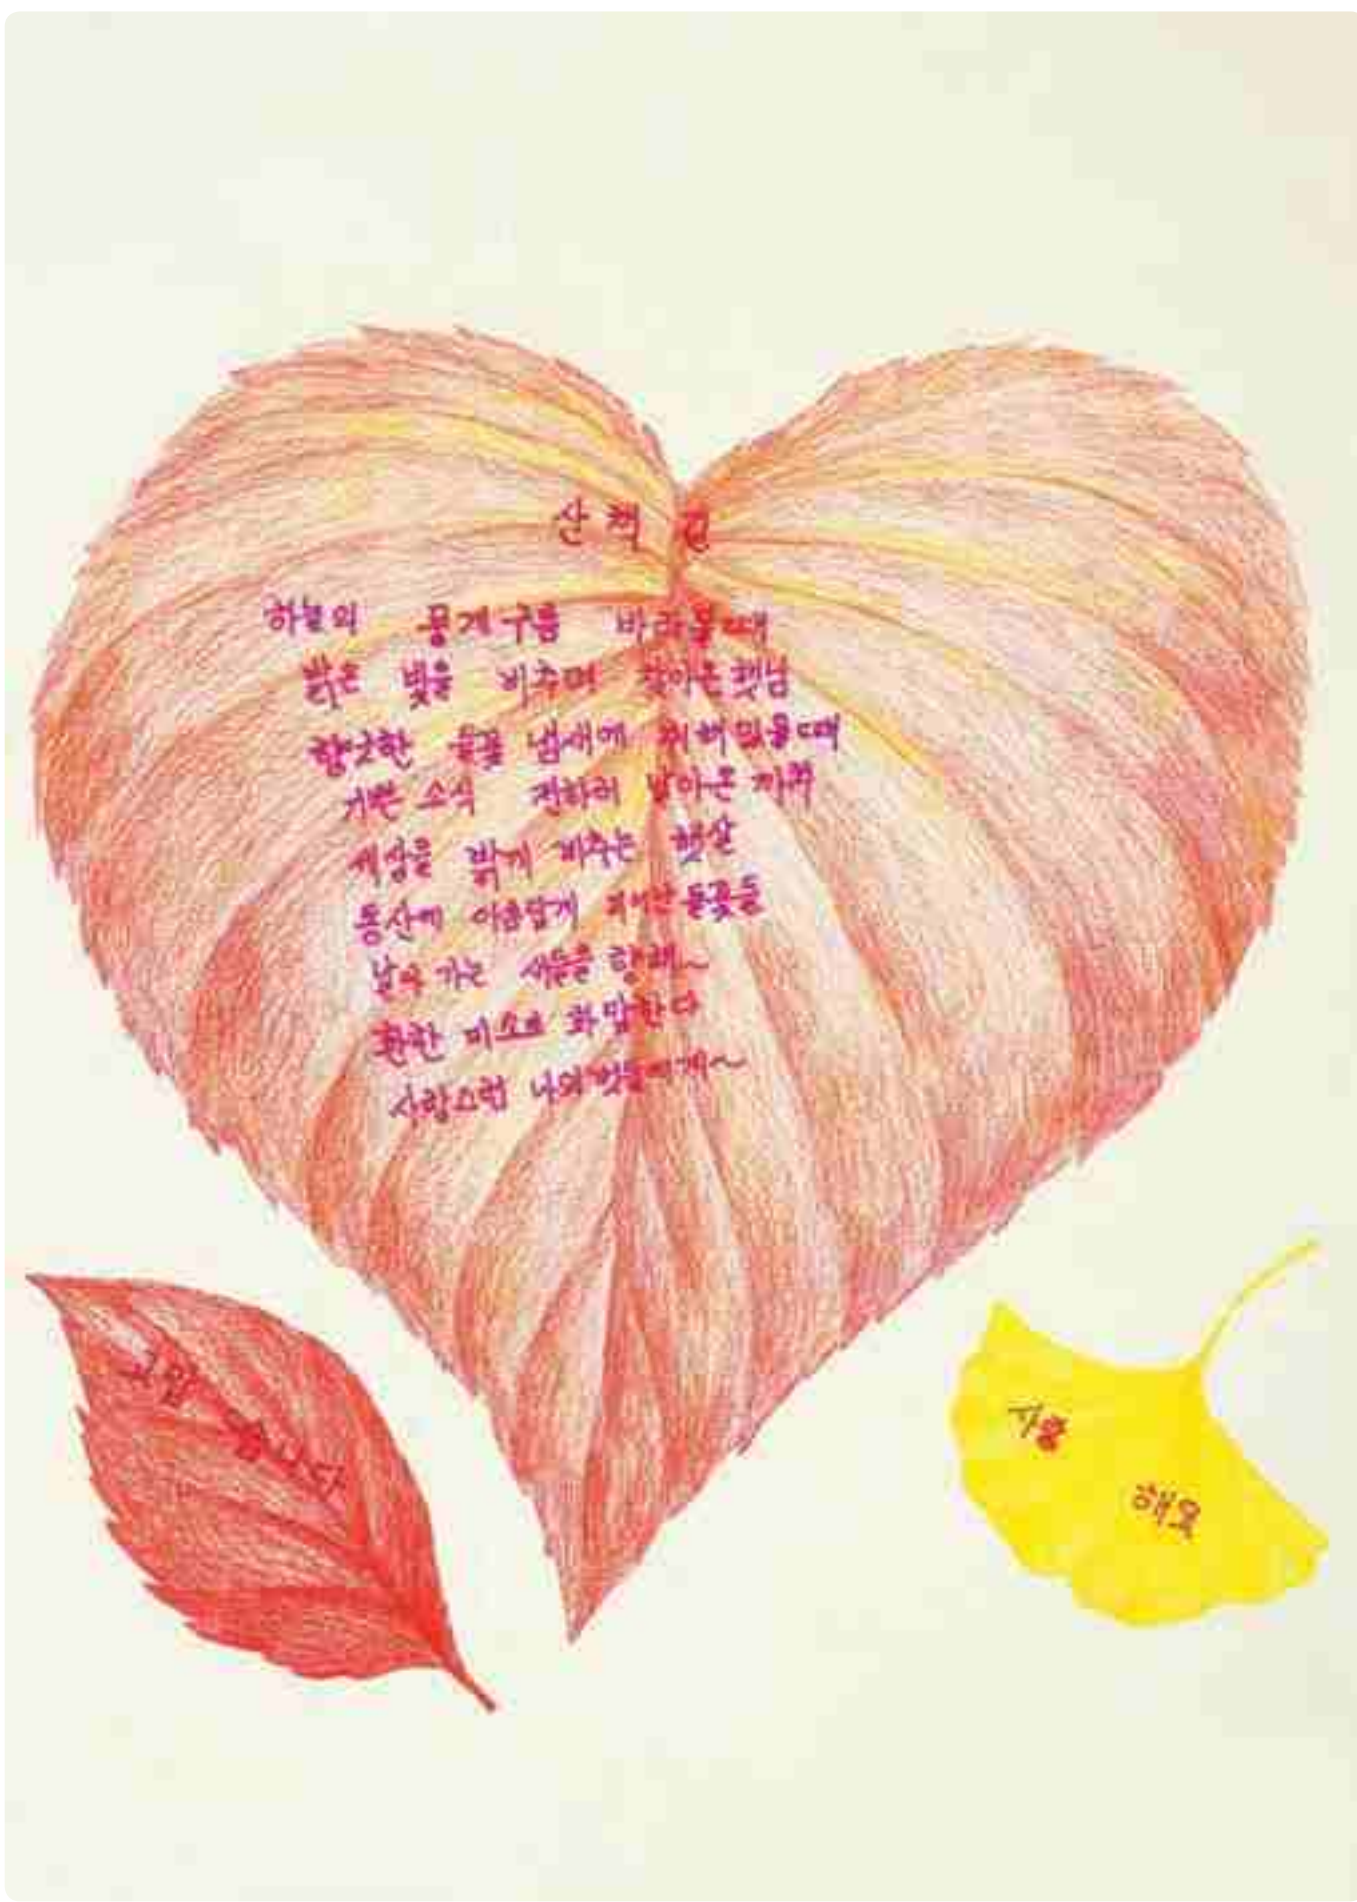 산책 길
하늘의 뭉게구름 바라볼때
밝은 빛을 비추며 찾아온햇님
향긋한 들꽃 냄새에 취해있을때
기쁜 소식 전하러 날아온 까치
세상을 밝게 비추는 햇살
동산에 아름답게 피어난 들꽃들
날아 가는 새들을 향해~
환한 미소로 화답한다
사랑스런 나의벗들에게~
고맙
습니다
사랑
해요